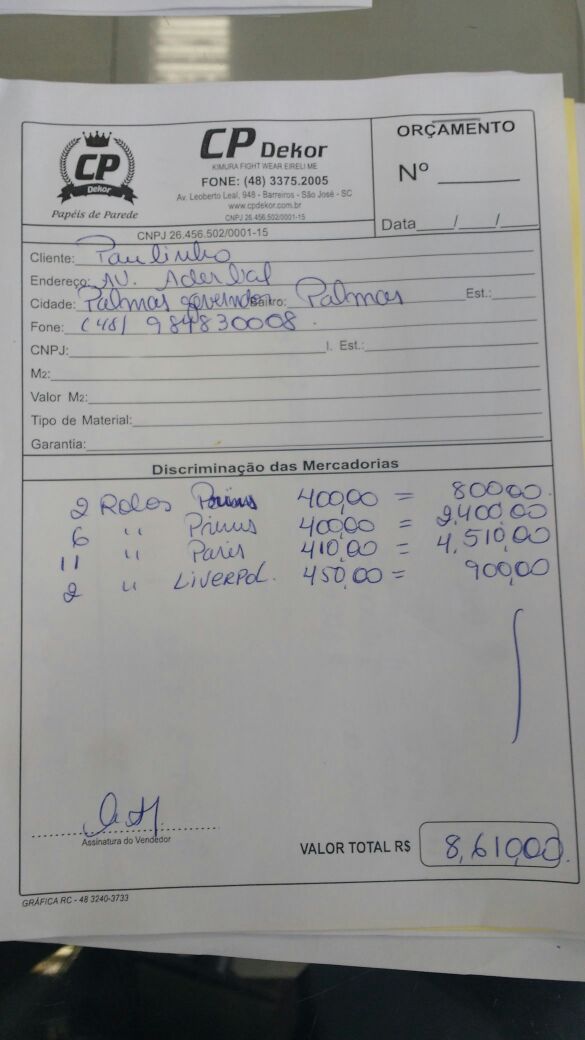 CP
Dekor
Papéis de Parede
CP Dekor
KIMURA FIGHT WEAR EIRELI ME
FONE: (48) 3375.2005
Av. Leoberto Leal, 948 - Barreiros - São José - SC
www.cpdekor.com.br
CNPJ 26.456.502/0001-15
ORÇAMENTO
Nº
Data / /
CNPJ 26.456.502/0001-15
Cliente: Paulinho
Endereço: AV. Aderbal
Cidade: Palmas Bairro: Palmas Est.:
Fone: (48) 984830008.
CNPJ: I. Est.:
M2:
Valor M2:
Tipo de Material:
Garantia:
Discriminação das Mercadorias
2 Rolos 400,00 = 800,00.
6 " Primus 400,00 = 2,400,00
11 " Paris 410,00 = 4,510,00
2 " LIVERPOL. 450,00 = 900,00
Assinatura do Vendedor
VALOR TOTAL R$ 8,610,00.
GRÁFICA RC - 48 3240-3733